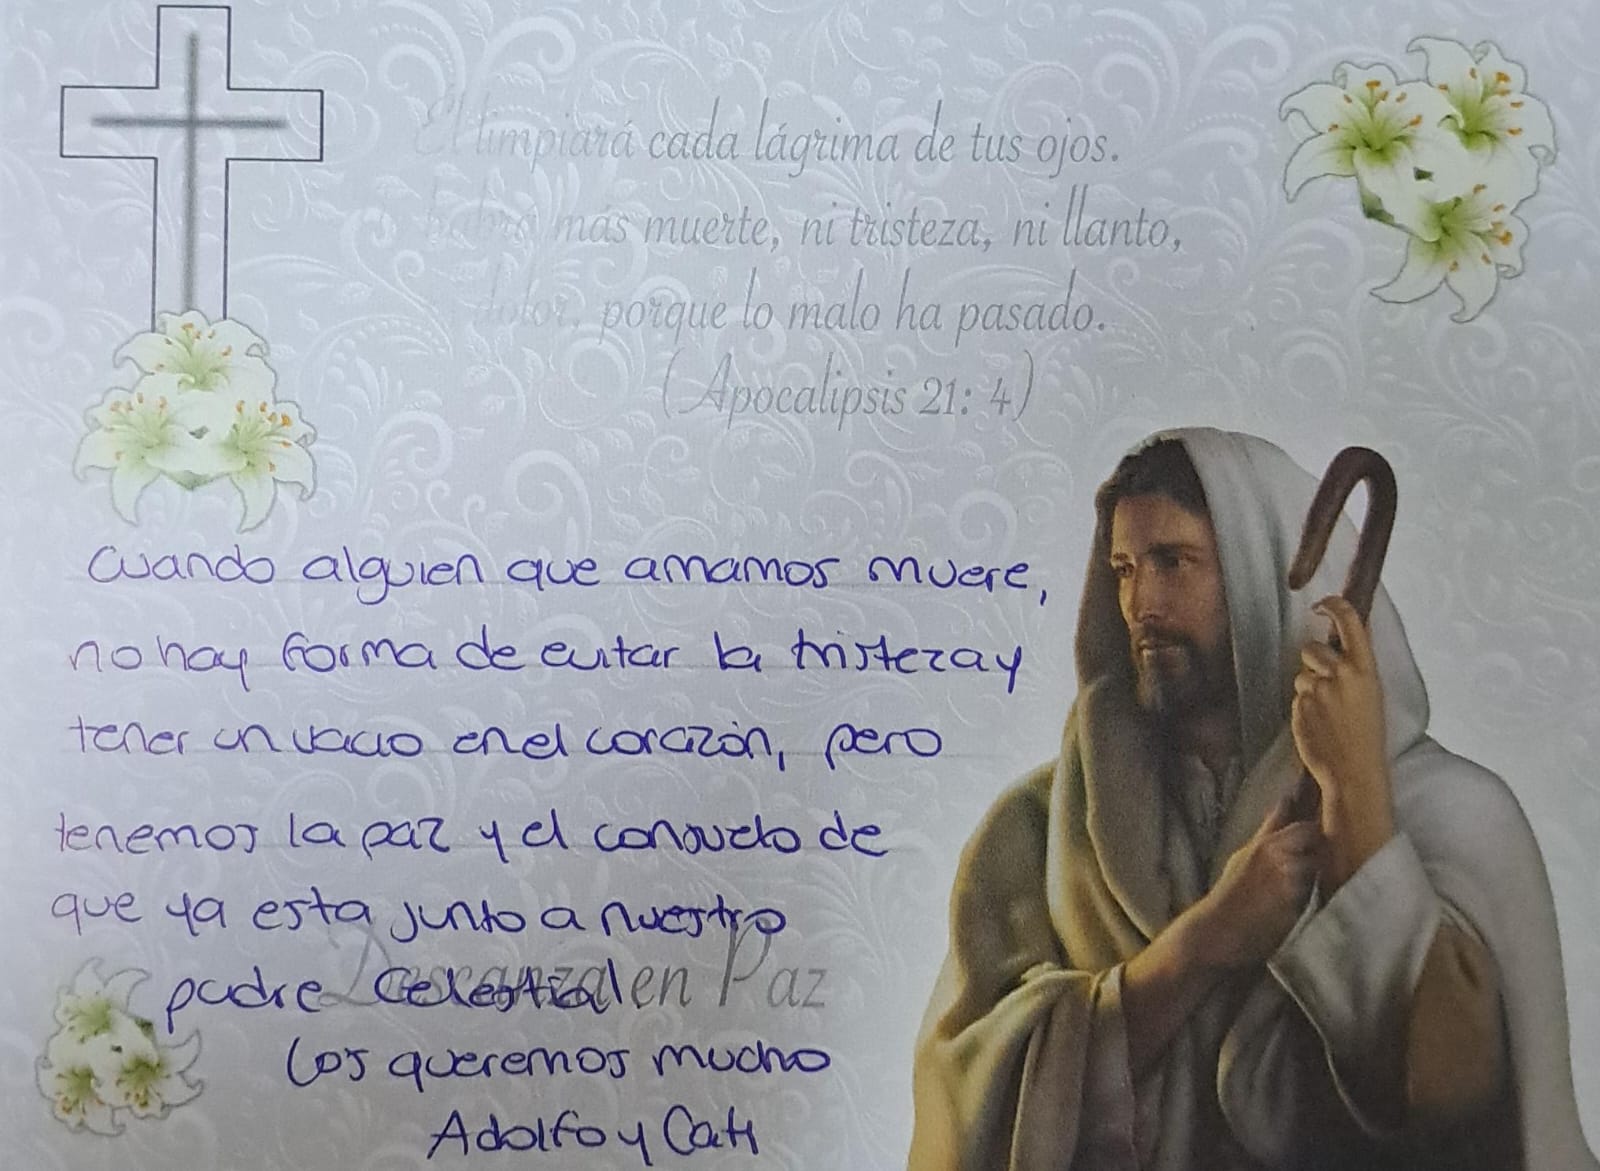 El limpiará cada lágrima de tus ojos.
habrá más muerte, ni tristeza, ni llanto,
dolor, porque lo malo ha pasado.
(Apocalipsis 21: 4)
Cuando alguien que amamos muere,
no hay forma de evitar la tristeza y
tener un vacio en el corazón, pero
tenemos la paz y el consuelo de
que ya esta junto a nuestro
padre Celestial
Descanza en Paz
Los queremos mucho
Adolfo y Cati